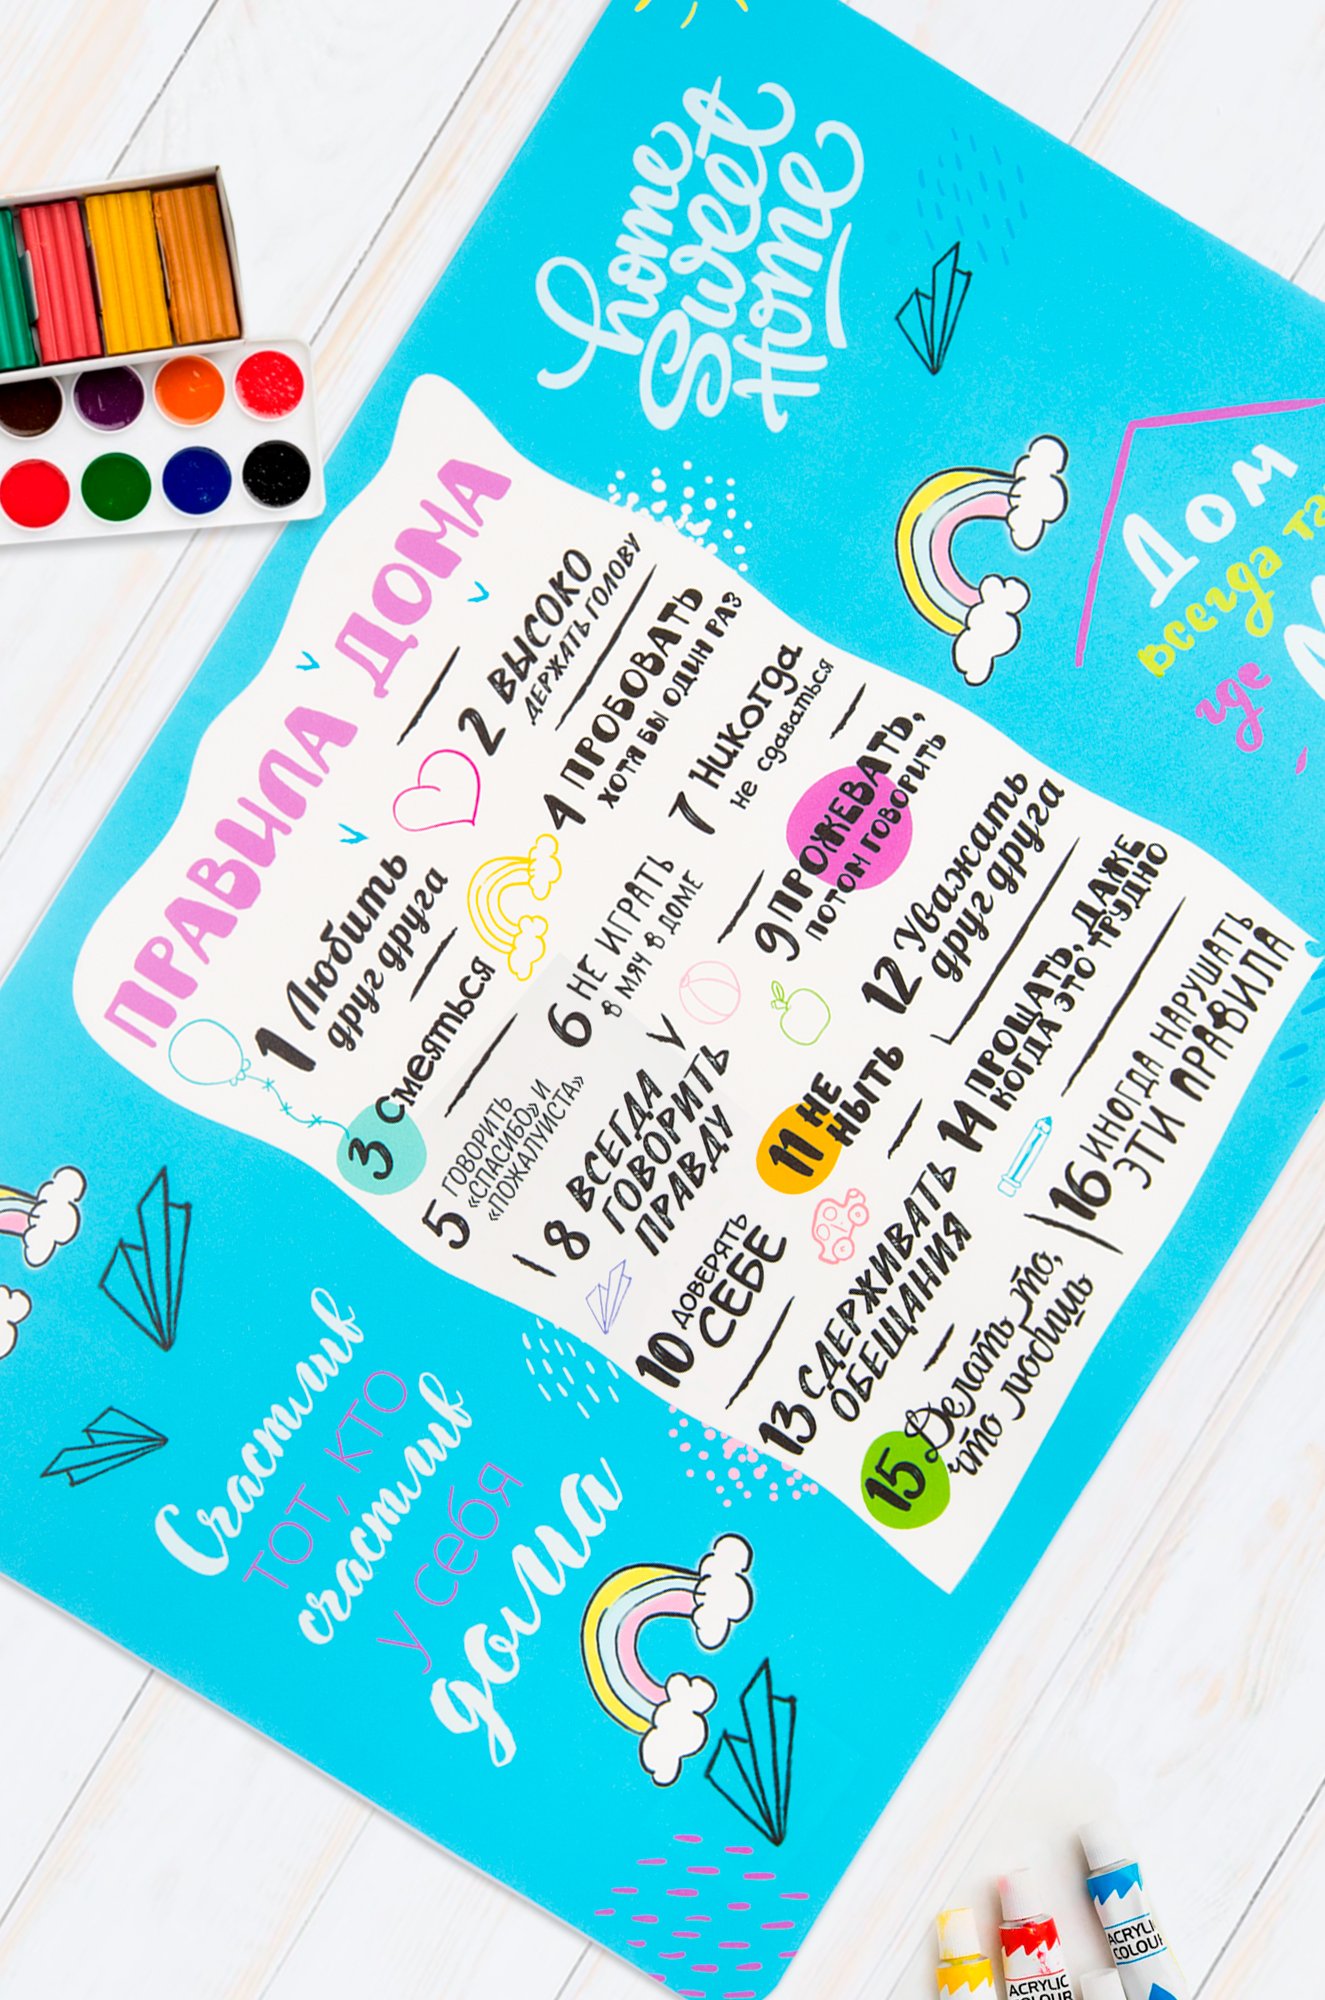 home
Sweet
Home
Дом
всегда
где
ПРАВИЛА ДОМА
1 Любить
друг друга
2 ВЫСОКО
ДЕРЖАТЬ ГОЛОВУ
3 Смеяться
4 ПРОБОВАТЬ
ХОТЯ БЫ ОДИН РАЗ
5 ГОВОРИТЬ
«СПАСИБО» И
«ПОЖАЛУИСТА»
6 НЕ ИГРАТЬ
В МЯЧ В ДОМЕ
7 Никогда
не сдаваться
8 ВСЕГДА
ГОВОРИТЬ
ПРАВДУ
9 ПРОЖЕВАТЬ,
ПОТОМ ГОВОРИТЬ
10 ДОВЕРЯТЬ
СЕБЕ
11 НЕ
НЫТЬ
12 Уважать
друг друга
13 СДЕРЖИВАТЬ
ОБЕЩАНИЯ
14 ПРОЩАТЬ, ДАЖЕ
КОГДА ЭТО ТРУДНО
15 Делать то,
что любишь
16 ИНОГДА НАРУШАТЬ
ЭТИ ПРАВИЛА
Счастлив
тот, кто
счастлив
у себя
дома
ACRYLIC
COLOUR
ACRYLIC
COLOUR